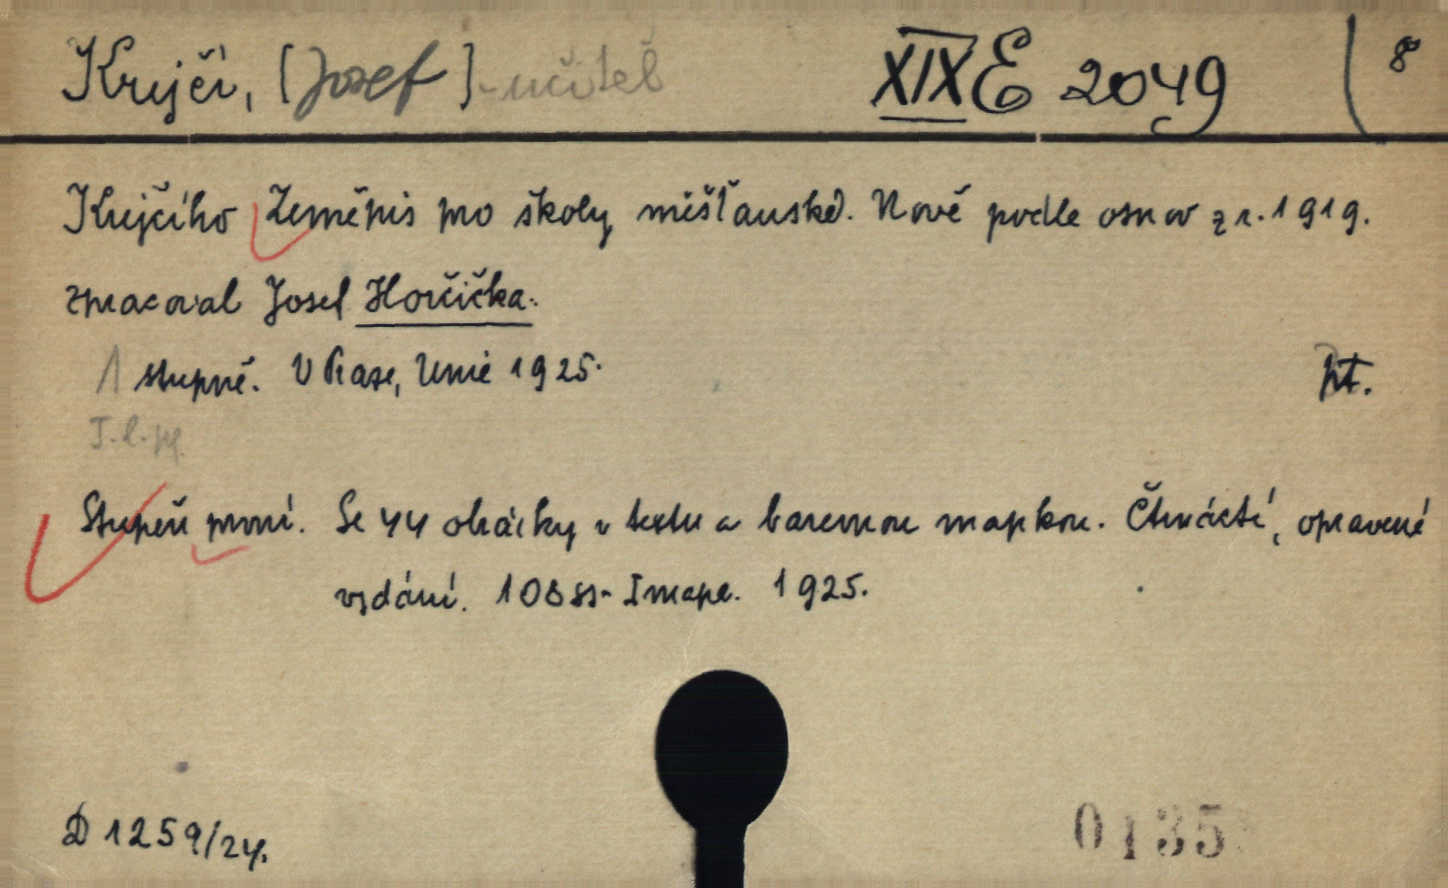 Krejčí, [Josef] - učitel XIX E 2049 8
Krejčího Zeměpis pro školy měšťanské. Nově podle osnov z r. 1919.
zpracoval Josef Horčička.
1 stupně. V Praze, Unie 1925. pt.
Stupeň první. Se 44 obrázky v textu a barevnou mapkou. Čtrnácté, opravené
vydání. 108 ss- 1 mapa. 1925.
D 1259/24.
0135